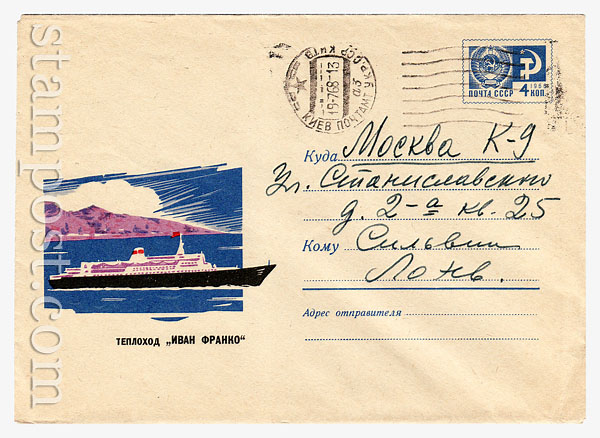 stampost.com
УКР.ССР КИЇВ
19-7 68-13
КИЕВ ПОЧТАМТ
ПОЧТА СССР
4 КОП.
Куда Москва К-9
Ул. Станиславского
д. 2-а кв. 25
Кому Сильвии
Адрес отправителя
ТЕПЛОХОД „ИВАН ФРАНКО“